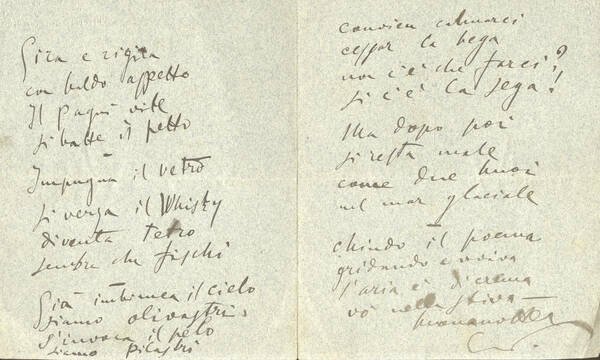 Gira e rigira
con baldo aspetto
Il Pagni vile
si batte il petto
Impugna il vetro
si versa il Whisky
diventa tetro
sembra che fischi
Già imbrunea il cielo
siamo olivastri
s'invoca il pelo
siamo pilastri
convien calmarci
cessar la bega
non c'è che farci?
si c'è la sega!
Ma dopo poi
si resta male
come due buoi
nel mar glaciale
chiudo il poema
gridando evviva
l'aria è di crema
vo nella stiva
buonanotte